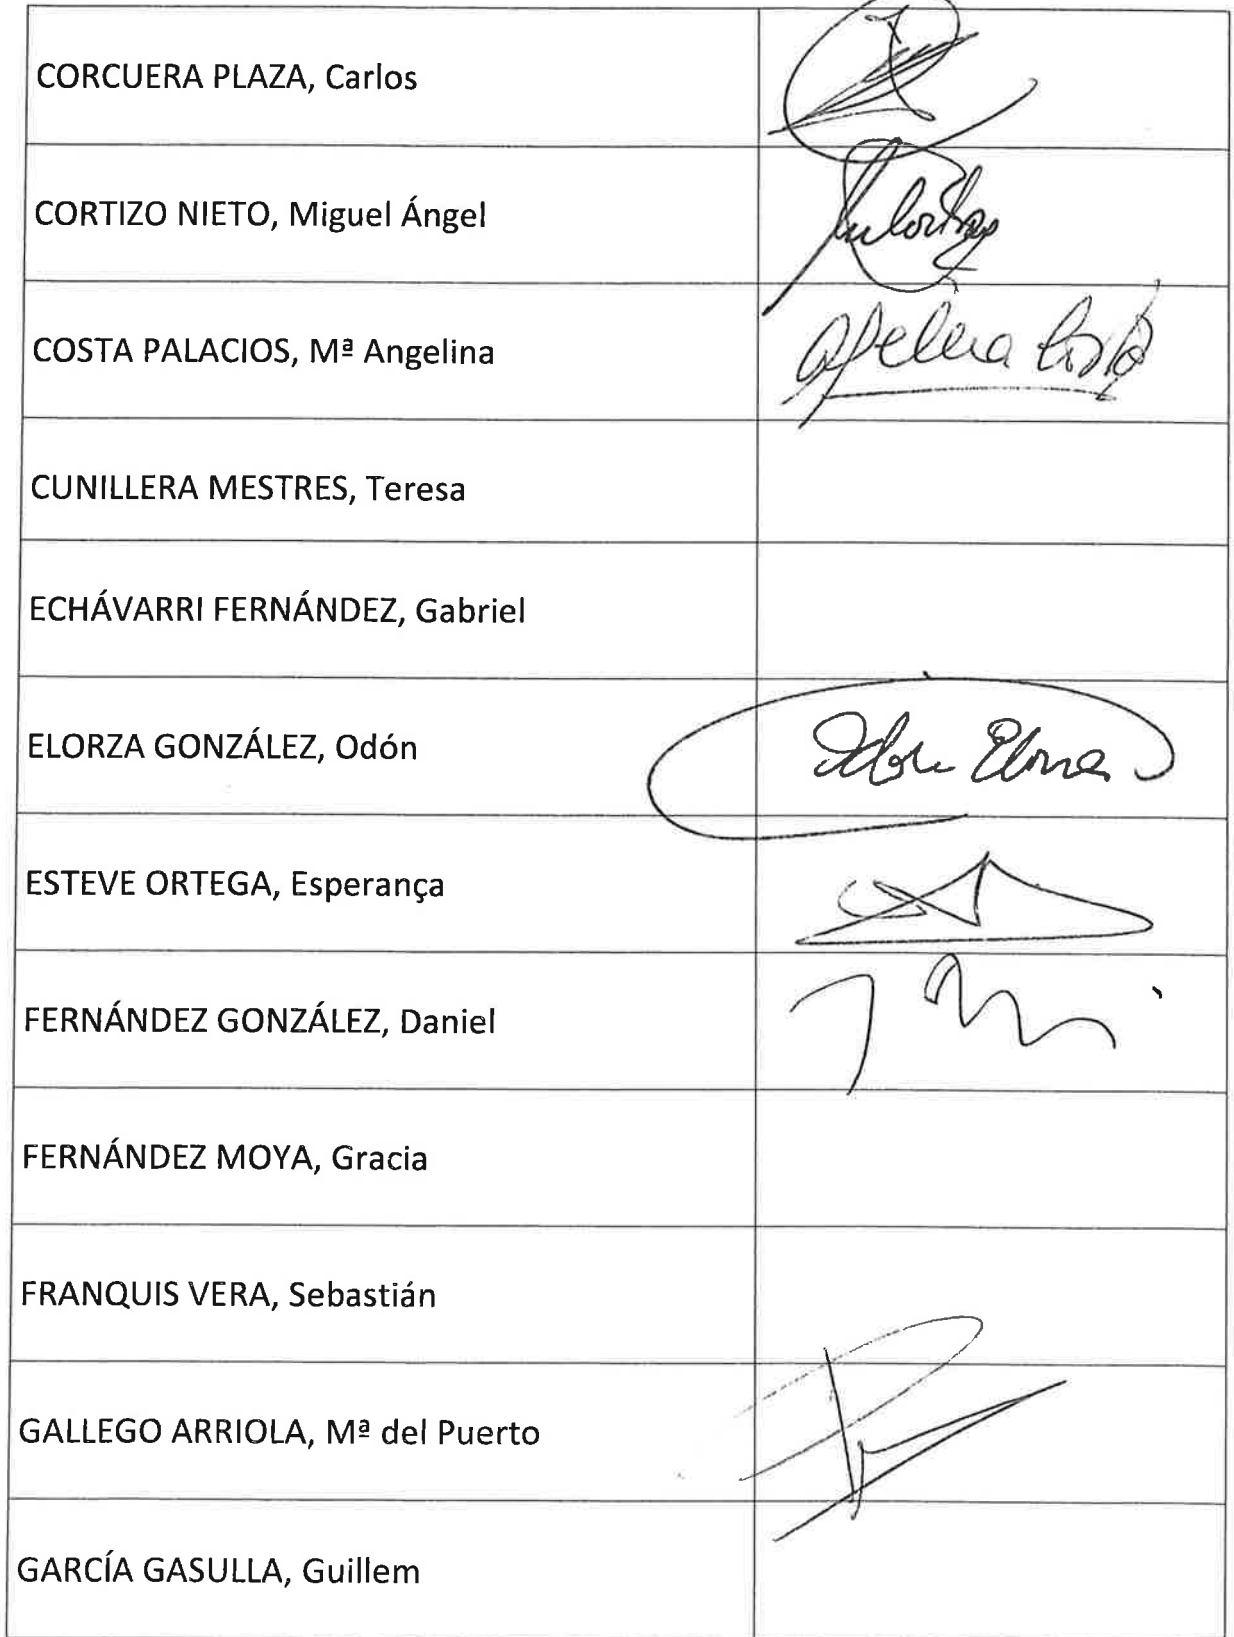 CORCUERA PLAZA, Carlos
CORTIZO NIETO, Miguel Ángel
COSTA PALACIOS, Mª Angelina
CUNILLERA MESTRES, Teresa
ECHÁVARRI FERNÁNDEZ, Gabriel
ELORZA GONZÁLEZ, Odón
ESTEVE ORTEGA, Esperança
FERNÁNDEZ GONZÁLEZ, Daniel
FERNÁNDEZ MOYA, Gracia
FRANQUIS VERA, Sebastián
GALLEGO ARRIOLA, Mª del Puerto
GARCÍA GASULLA, Guillem